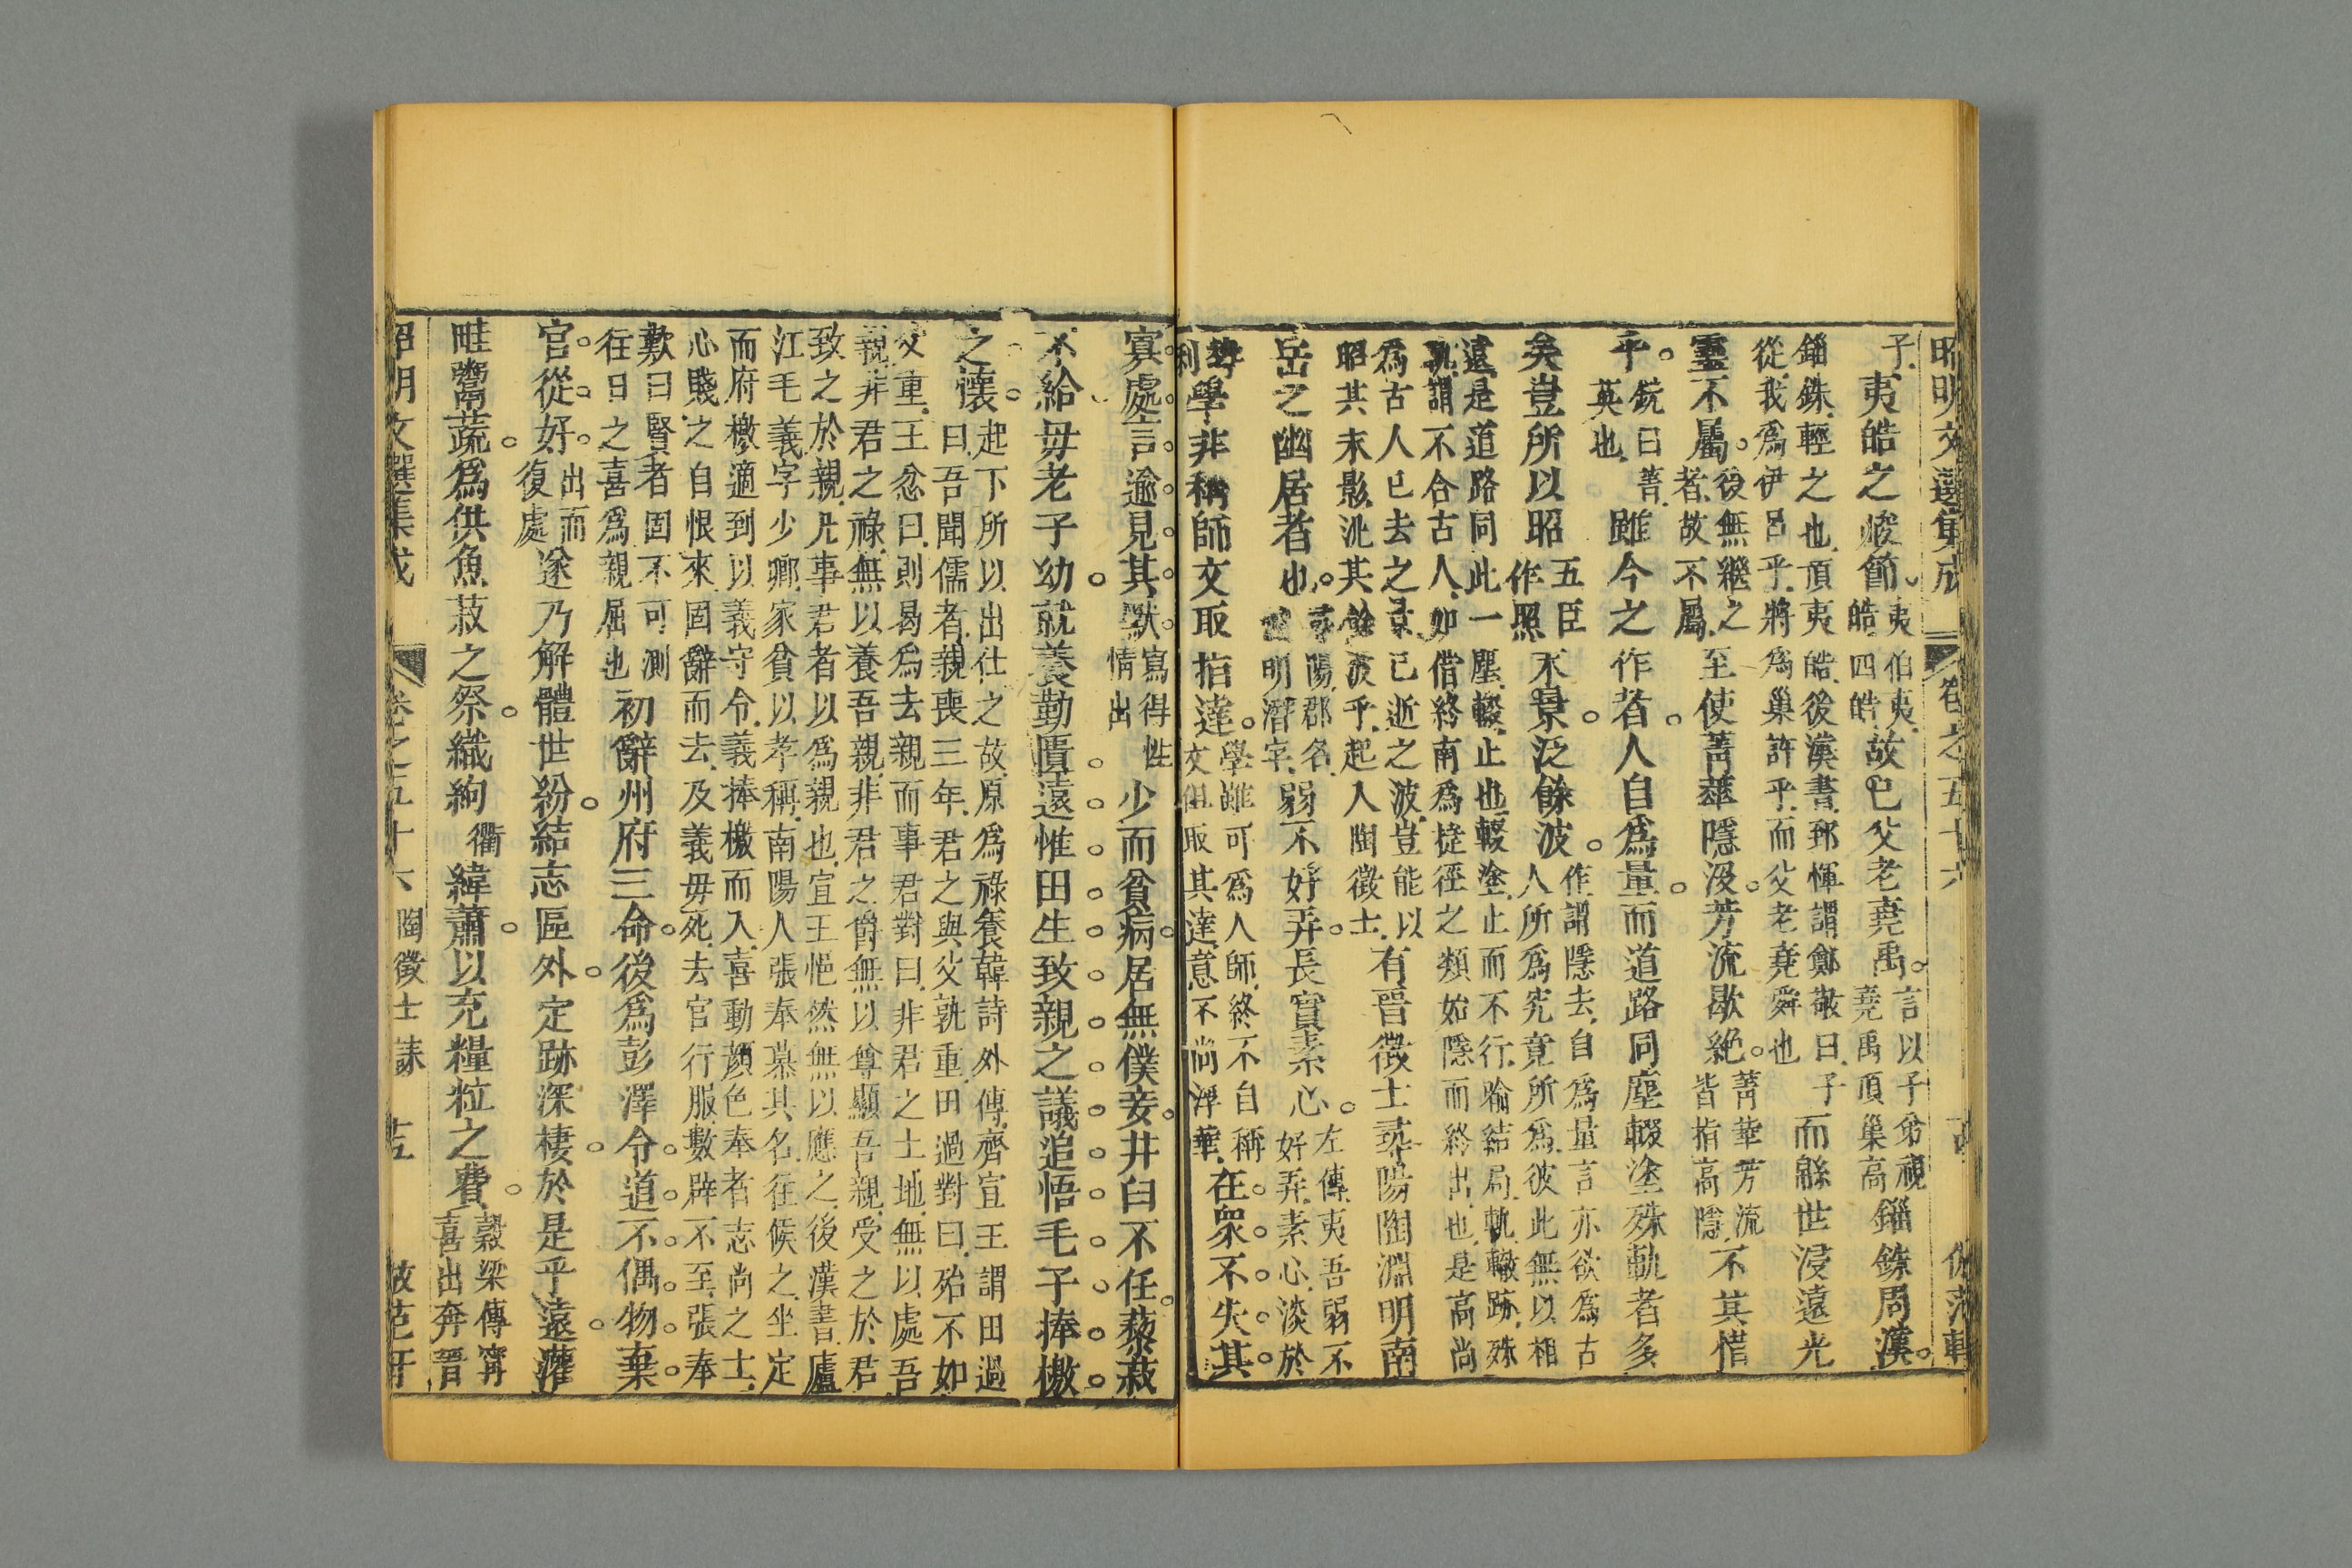 昭明文選集成 卷之五十六 古 倣范軒
子、夷皓之峻節、夷伯夷、皓四皓故已父老堯禹。言以子弟視堯禹頂巢高錙銖周漢。
錙銖、輕之也、頂夷皓、後漢書、郅惲謂鄭敬曰、子從我爲伊呂乎、將爲巢許乎、而父老堯舜也而緜世浸遠光
靈不屬。後無繼之者、故不屬、至使菁華隱沒。芳流歇絕。菁華芳流皆指高隱、不其惜
乎。銑曰菁英也、雖今之作者。人自爲量。而道路同塵輟塗殊軌者多
矣豈所以昭五臣作照末景。泛餘波。作謂隱去、自爲量言亦欲爲古人所爲究竟所爲、彼此無以相
遠、是道路同此一塵、輟、止也、輟塗、止而不行、喻結局、軌、轍跡、殊軌、謂不合古人、如借終南爲捷徑之類始隱而終出也、是高尚
爲古人已去之景、已逝之波、豈能以昭其末影泚其餘波乎、起入陶徵士、有晉徵士尋陽陶淵明南
岳之幽居者也。尋陽、郡名、淵明潛字、弱不好弄。長實素心。左傳、夷吾弱不好弄、素心、淡於
勢利學非稱師文取指達。學雖可爲人師、終不自稱文但取其達意、不尚浮華、在衆。不失其
寡處言逾見其默寫得性情出少而貧病。居無僕妾。井臼不任。藜菽
不給毋老子幼。就養勤匱遠惟田生致親之議追悟毛子捧檄
之懷。起下所以出仕之故、原爲祿養韓詩外傳、齊宣王謂田過曰、吾聞儒者、親喪三年、君之與父孰重、田過對曰、殆不如
父重、王忿曰、則曷爲去親而事君對曰、非君之土地、無以處吾親非君之祿、無以養吾親、非君之爵無以尊顯吾親、受之於君
致之於親、凡事君者以爲親也、宣王悒然無以應之、後漢書、廬江毛義字少卿、家貧以孝稱、南陽人張奉慕其名、往候之、坐定
而府檄適到以義守令、義捧檄而入、喜動顏色奉者志尚之士、心賤之自恨來、固辭而去、及義毋死、去官行服、數辟不至、張奉
歎曰賢者固不可測往日之喜爲親屈也初辭州府三命。後爲彭澤令。道。不。偶。物。棄。
官。從。好。出而復處遂乃解體世紛。結志區外。定跡深棲。於是乎遠。灌
畦鬻蔬。爲供魚菽之祭。織絇衢緯蕭。以充糧粒之費。穀梁傳甯喜出奔晉
昭明文選集成 卷之五十六 陶徵士誄 左 倣范軒